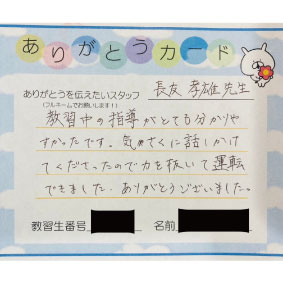 ありがとうカード
ありがとうを伝えたいスタッフ 長友 孝雄 先生
(フルネームでお願いします!)
教習中の指導がとても分かりや
すかったです。気さくに話しかけ
てくださったので力を抜いて運転
できました。ありがとうございました。
教習生番号 名前